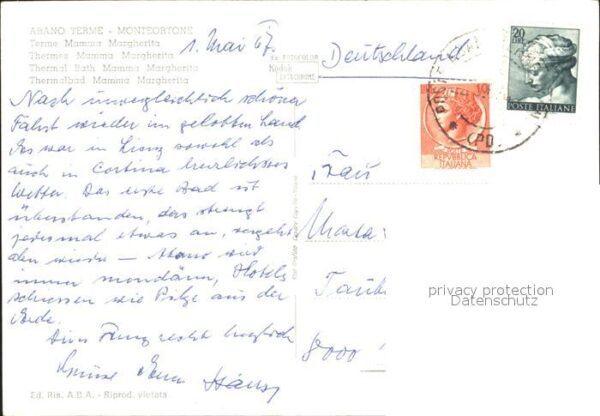 ABANO TERME - MONTEORTONE
Terme Mamma Margherita
Thermes Mamma Margherita
Thermal Bath Mamma Margherita
Thermalbad Mamma Margherita
1. Mai 67.
Deutschland
Kodak
EKTACHROME
20
LIRE
POSTE ITALIANE
REPVBBLICA
ITALIANA
(PD)
Nach unvergleichlich schöner
Fahrt wieder im gelobten Land.
Es war in Lienz sowohl als
auch in Cortina herrlichstes
Wetter. Das erste Bad ist
überstanden, das strengt
jedesmal etwas an, vergeht
dann wieder — Abano wird
immer mondäner, Hotels
schiessen wie Pilze aus der
Erde.
recht herzlich
Grüsse
Frau
Maria
8000
privacy protection
Datenschutz
Ed. Ris. A.B.A. - Riprod. vietata